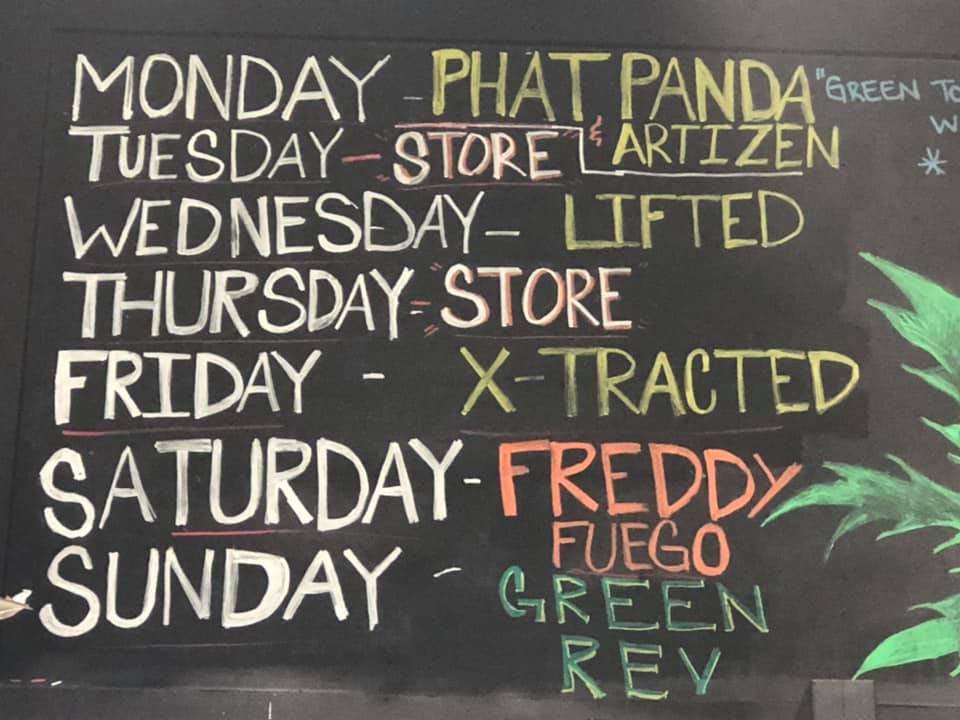 MONDAY - PHAT PANDA "GREEN TO
& ARTIZEN W
TUESDAY - "STORE" *
WEDNESDAY - LIFTED
THURSDAY - "STORE"
FRIDAY - X-TRACTED
SATURDAY - FREDDY
FUEGO
SUNDAY - GREEN
REV